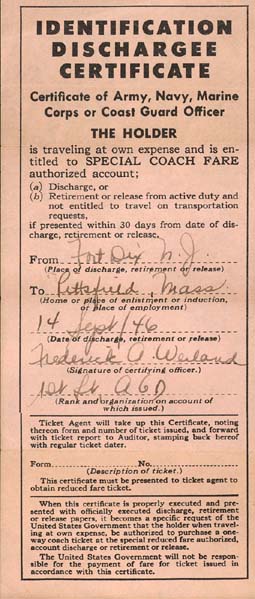 IDENTIFICATION
DISCHARGEE
CERTIFICATE
Certificate of Army, Navy, Marine
Corps or Coast Guard Officer
THE HOLDER
is traveling at own expense and is en-
titled to SPECIAL COACH FARE
authorized account;
(a) Discharge, or
(b) Retirement or release from active duty and
not entitled to travel on transportation
requests,
if presented within 30 days from date of dis-
charge, retirement or release.
From Fort Dix N.J.
(Place of discharge, retirement or release)
To Pittsfield, Mass
(Home or place of enlistment or induction,
or place of employment)
14 Sept/46
(Date of discharge, retirement or release)
Frederick A Weiland
(Signature of certifying officer.)
1st Lt, AGD
(Rank and organization on account of
which issued.)
Ticket Agent will take up this Certificate, noting
thereon form and number of ticket issued, and forward
with ticket report to Auditor, stamping back hereof
with regular ticket dater.
Form No.
(Description of ticket.)
This certificate must be presented to ticket agent to
obtain reduced fare ticket.
When this certificate is properly executed and pre-
sented with officially executed discharge, retirement
or release papers, it becomes a specific request of the
United States Government that the holder when travel-
ing at own expense, be authorized to purchase a one-
way coach ticket at the special reduced fare authorized,
account discharge or retirement or release.
The United States Government will not be respon-
sible for the payment of fare for ticket issued in
accordance with this certificate.